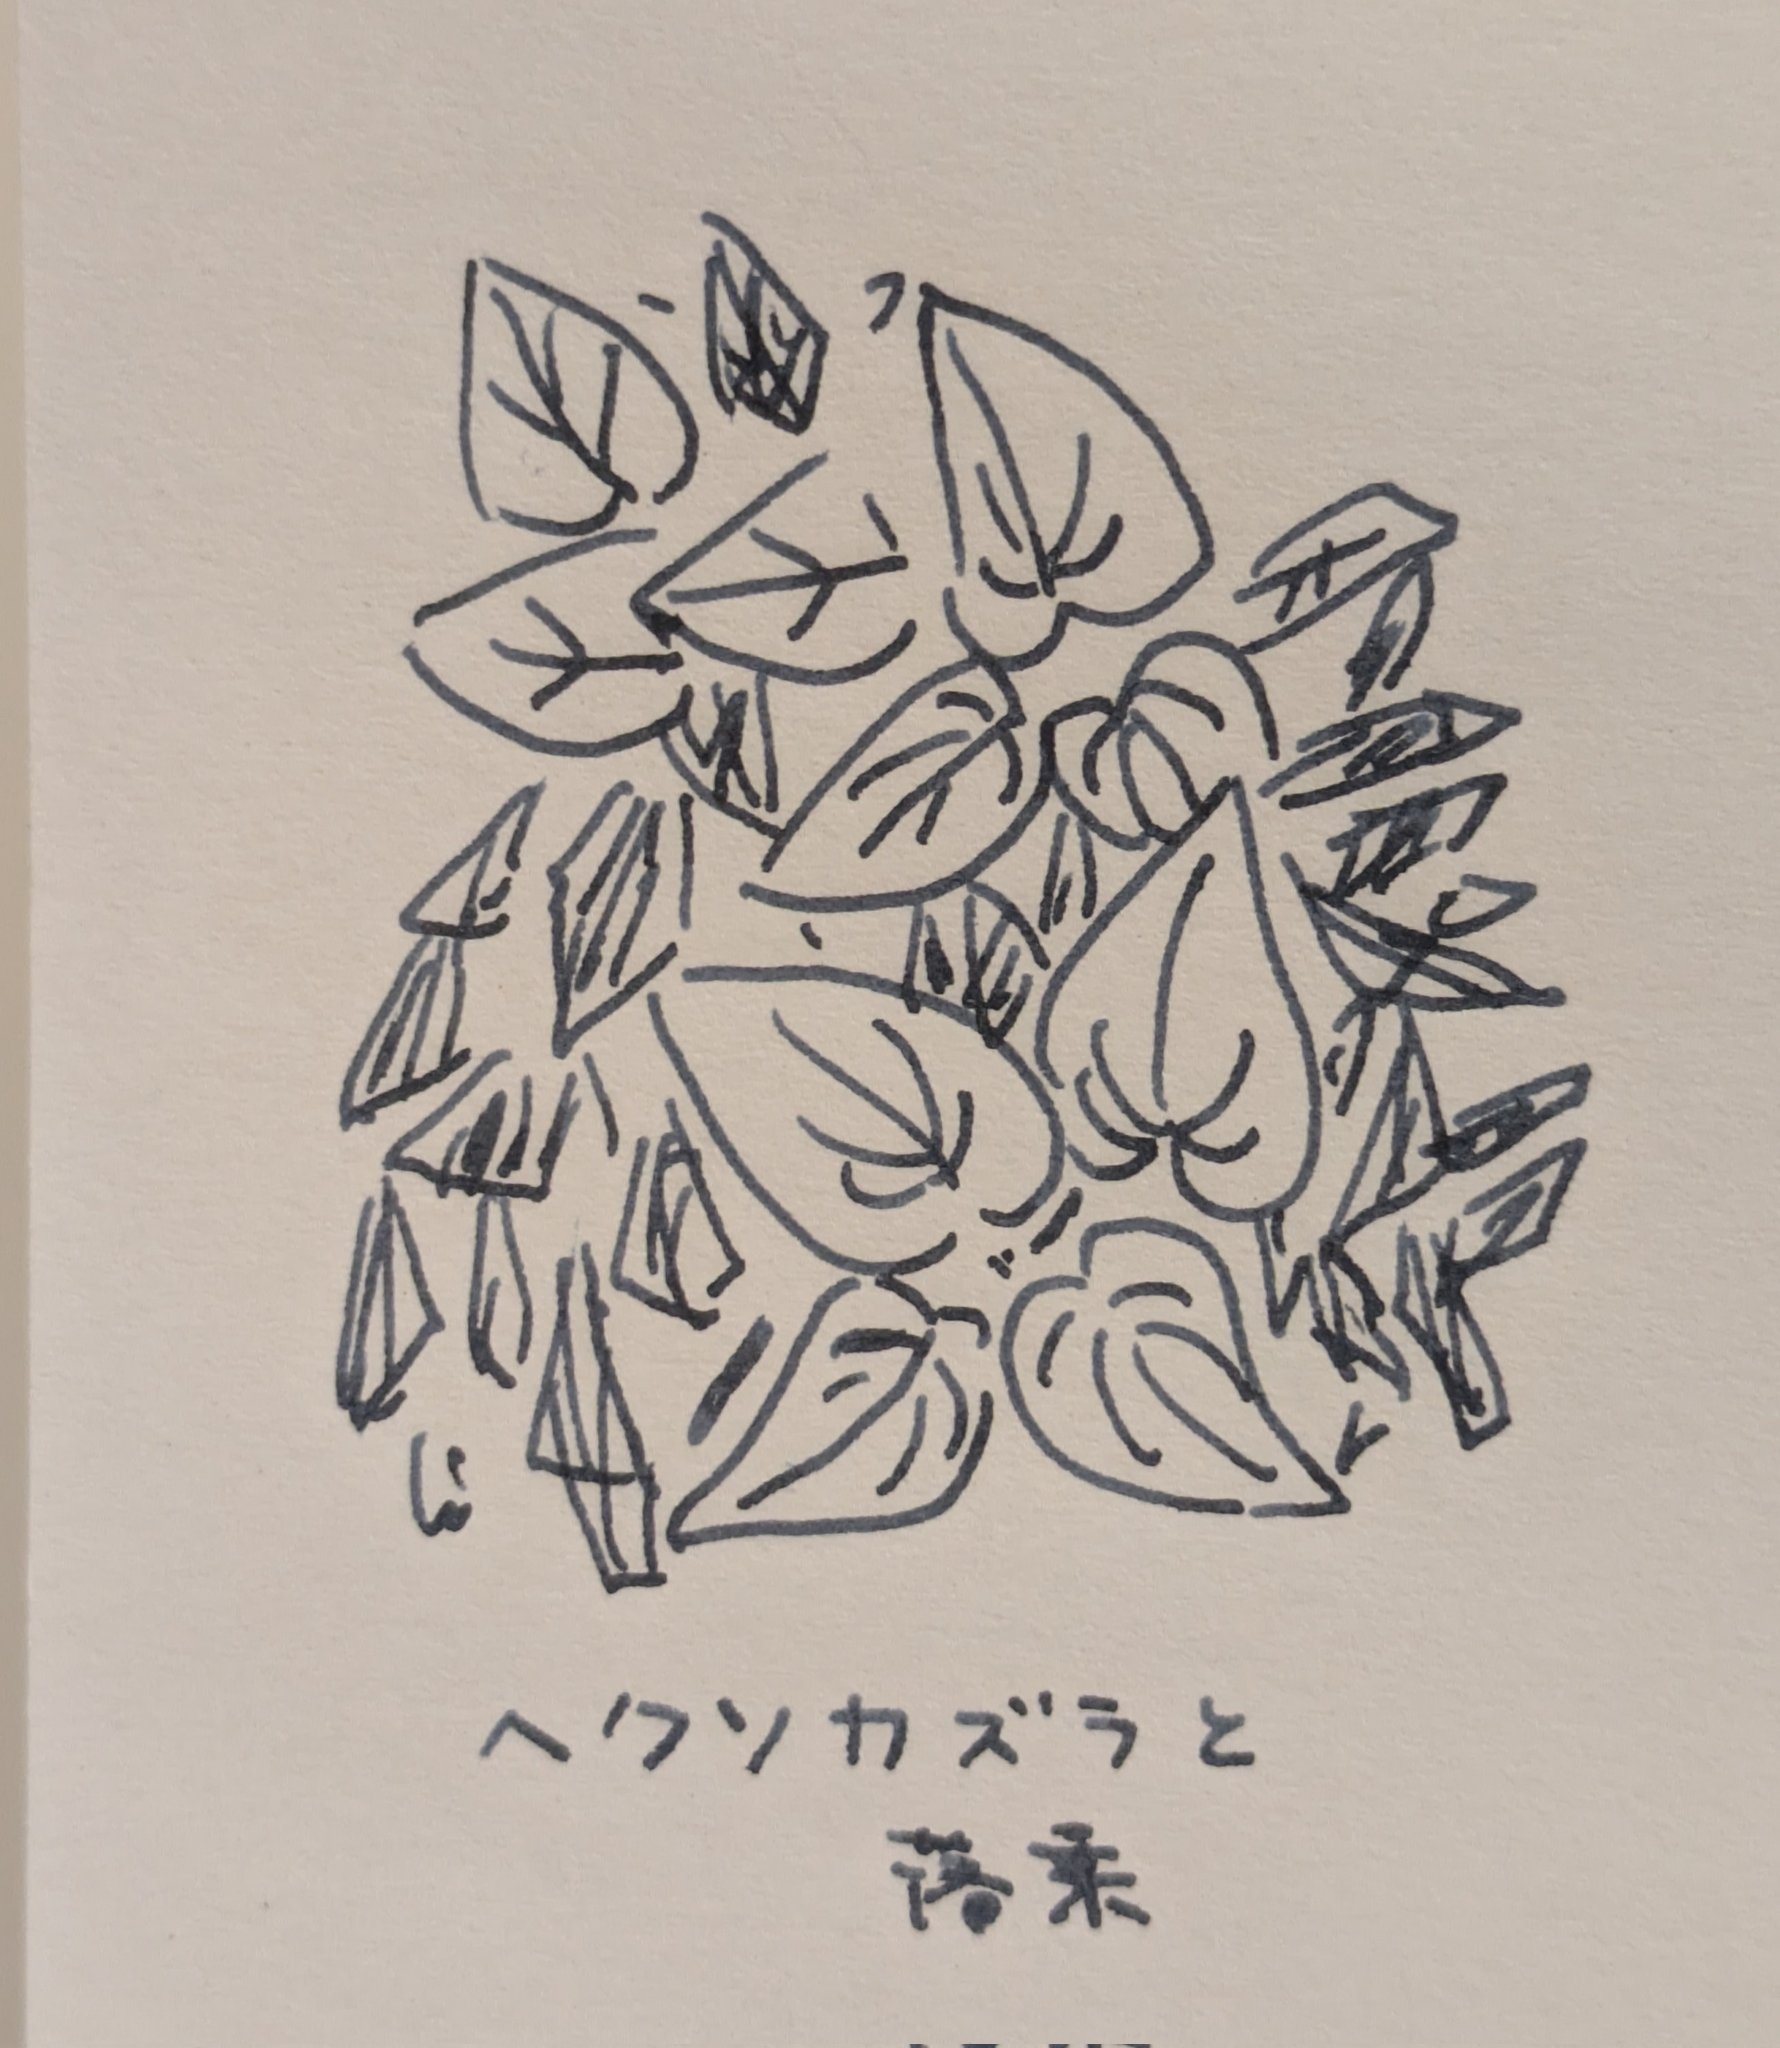 ヘクソカズラと
落葉